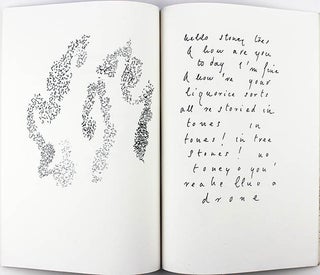 hello stoney toes
& how are you
to day I'm fine
& how're your
liquorice sorts
all re storied in
tones in
tones! in tree
stones! no
toney o you'
re a he llu o a
drone